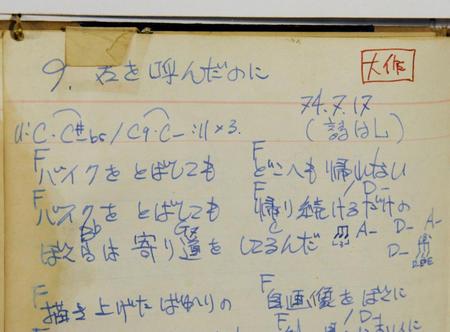 9. 君を呼んだのに
大作
74.7.17
F F
バイクを とばしても どこへも帰れない
F F /D-
バイクを とばしても 帰り続けるだけの
ぼくらは 寄り道を してるんだ A- D- A-
D-
F F /D-
描き上げた ばかりの 自画像を ぼくに